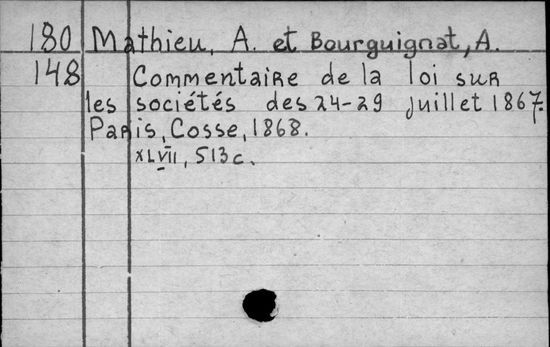 180 Mathieu, A. et Bourguignat, A.
148 Commentaire de la loi sur
les sociétés des 24-29 juillet 1867.
Paris, Cosse, 1868.
XLVII, 513c.